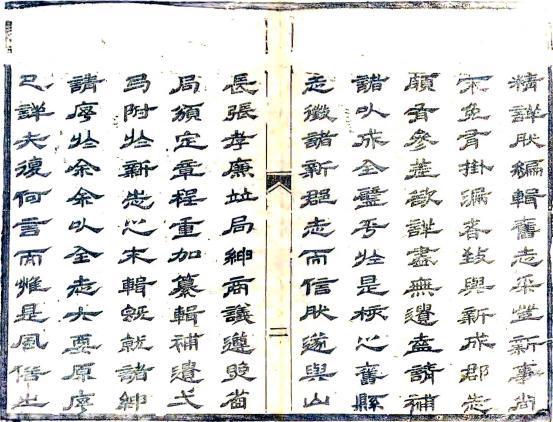 精詳肰編輯舊志采新事尚
不免有掛漏者致與新成郡志
頗有參差欲詳盡無遺盍請補
諸以成全璧乎於是核之舊縣
志徵諸新郡志而信肰遂與山
二
長張孝廉竝局紳商議遵照省
局頒定章程重加纂輯補遺弌
弓附於新志之末輯既就諸紳
請序於余余以全志大要原序
已詳夫復何言而惟是風俗之